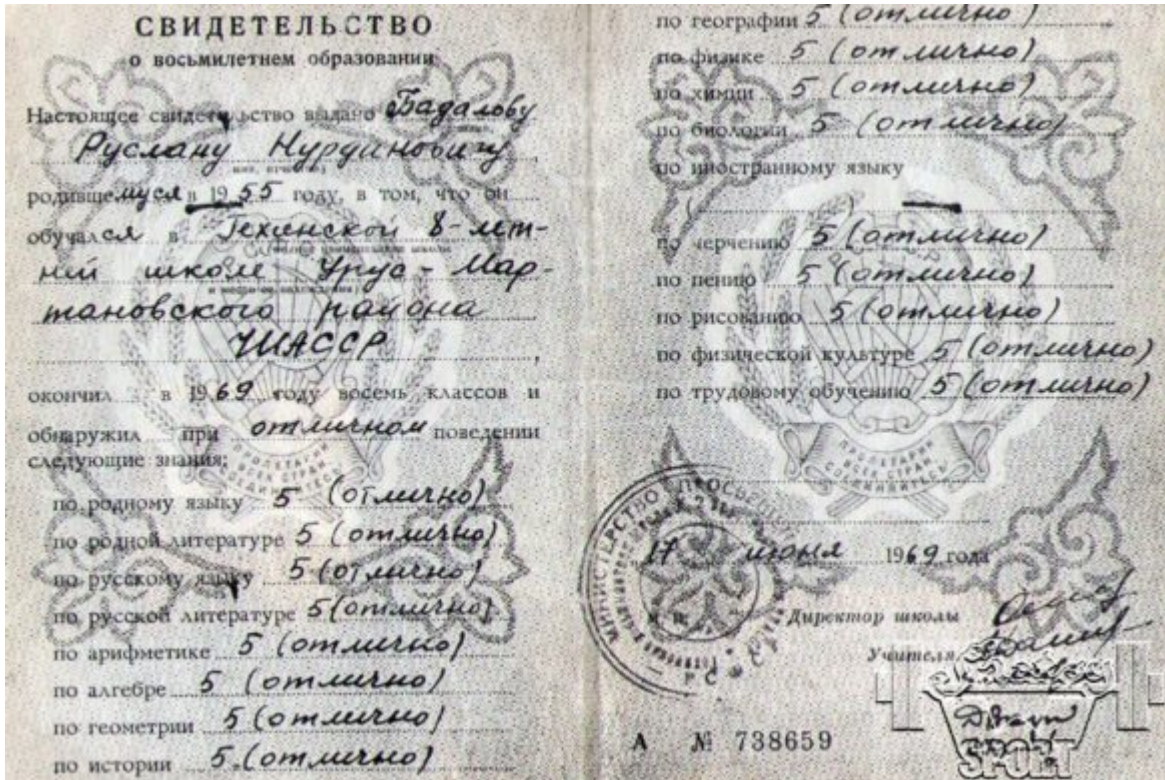 СВИДЕТЕЛЬСТВО
о восьмилетнем образовании
Настоящее свидетельство выдано Бадалову
Руслану Нурдиновичу
имя, отчество)
родившемуся в 1955 году, в том, что он
обучался в Гехинской 8-лет-
ней школе Урус-Мар-
тановского района
ЧИАССР
окончил в 1969 году восемь классов и
обнаружил при отличном поведении
следующие знания:
по родному языку 5 (отлично)
по родной литературе 5 (отлично)
по русскому языку 5 (отлично)
по русской литературе 5 (отлично)
по арифметике 5 (отлично)
по алгебре 5 (отлично)
по геометрии 5 (отлично)
по истории 5 (отлично)
по географии 5 (отлично)
по физике 5 (отлично)
по химии 5 (отлично)
по биологии 5 (отлично)
по иностранному языку
( — )
по черчению 5 (отлично)
по пению 5 (отлично)
по рисованию 5 (отлично)
по физической культуре 5 (отлично)
по трудовому обучению 5 (отлично)
ПРОЛЕТАРИИ
ВСЕХ СТРАН
СОЕДИНЯЙТЕСЬ
МИНИСТЕРСТВО ПРОСВЕЩЕНИЯ
РСФСР
17 июня 1969 года
Директор школы
Учителя
А № 738659
SPORT